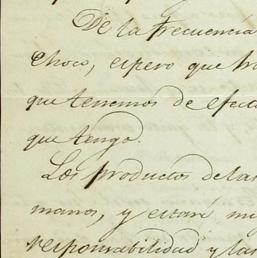 De la frecuencia
Choco, espero que
que tenemos de efect
que tengo.
Los productos de las
manos, y estaré
responsabilidad y las